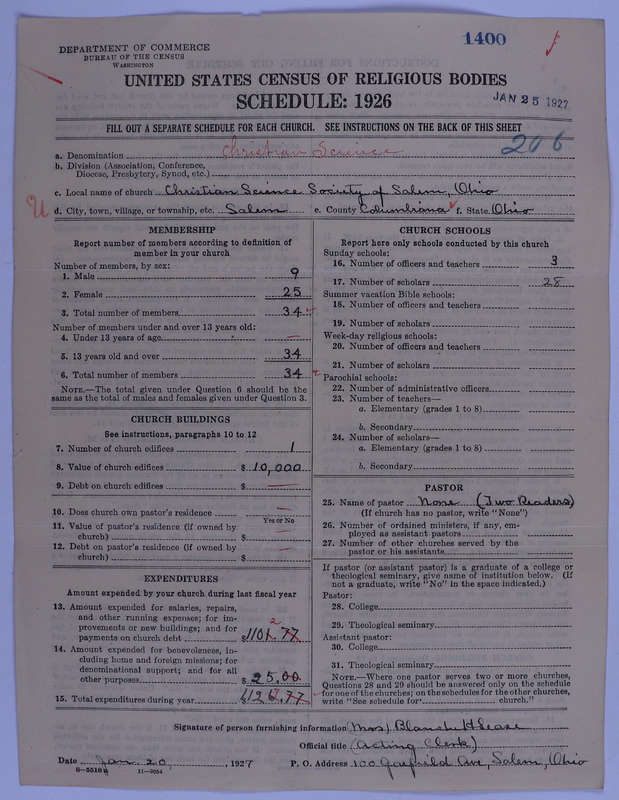 1400
DEPARTMENT OF COMMERCE
BUREAU OF THE CENSUS
WASHINGTON
UNITED STATES CENSUS OF RELIGIOUS BODIES
SCHEDULE: 1926
JAN 25 1927
FILL OUT A SEPARATE SCHEDULE FOR EACH CHURCH. SEE INSTRUCTIONS ON THE BACK OF THIS SHEET
206
a. Denomination Christian Science
b. Division (Association, Conference,
Diocese, Presbytery, Synod, etc.)
c. Local name of church Christian Science Society of Salem, Ohio
d. City, town, village, or township, etc. Salem e. County Columbiana f. State Ohio
MEMBERSHIP
Report number of members according to definition of
member in your church
Number of members, by sex:
1. Male 9
2. Female 25
3. Total number of members 34
Number of members under and over 13 years old:
4. Under 13 years of age —
5. 13 years old and over 34
6. Total number of members 34
NOTE.—The total given under Question 6 should be the
same as the total of males and females given under Question 3.
CHURCH BUILDINGS
See instructions, paragraphs 10 to 12
7. Number of church edifices 1
8. Value of church edifices $10,000
9. Debt on church edifices $ —
10. Does church own pastor's residence —
Yes or No
11. Value of pastor's residence (if owned by
church) $ —
12. Debt on pastor's residence (if owned by
church) $ —
EXPENDITURES
Amount expended by your church during last fiscal year
13. Amount expended for salaries, repairs,
and other running expenses; for im-
provements or new buildings; and for
payments on church debt $1101.77
14. Amount expended for benevolences, in-
cluding home and foreign missions; for
denominational support; and for all
other purposes $25.00
15. Total expenditures during year $1126.77
CHURCH SCHOOLS
Report here only schools conducted by this church
Sunday schools:
16. Number of officers and teachers 3
17. Number of scholars 28
Summer vacation Bible schools:
18. Number of officers and teachers
19. Number of scholars
Week-day religious schools:
20. Number of officers and teachers
21. Number of scholars
Parochial schools:
22. Number of administrative officers
23. Number of teachers—
a. Elementary (grades 1 to 8)
b. Secondary
24. Number of scholars—
a. Elementary (grades 1 to 8)
b. Secondary
PASTOR
25. Name of pastor None (Two Readers)
(If church has no pastor, write "None")
26. Number of ordained ministers, if any, em-
ployed as assistant pastors
27. Number of other churches served by the
pastor or his assistants
If pastor (or assistant pastor) is a graduate of a college or
theological seminary, give name of institution below. (If
not a graduate, write "No" in the space indicated.)
Pastor:
28. College
29. Theological seminary
Assistant pastor:
30. College
31. Theological seminary
NOTE.—Where one pastor serves two or more churches,
Questions 28 and 29 should be answered only on the schedule
for one of the churches; on the schedules for the other churches,
write "See schedule for church."
Signature of person furnishing information (Mrs) Blanche
Official title (Acting Clerk)
Date Jan. 20, 1927 P. O. Address 100 Garfield Ave, Salem, Ohio
11—9054